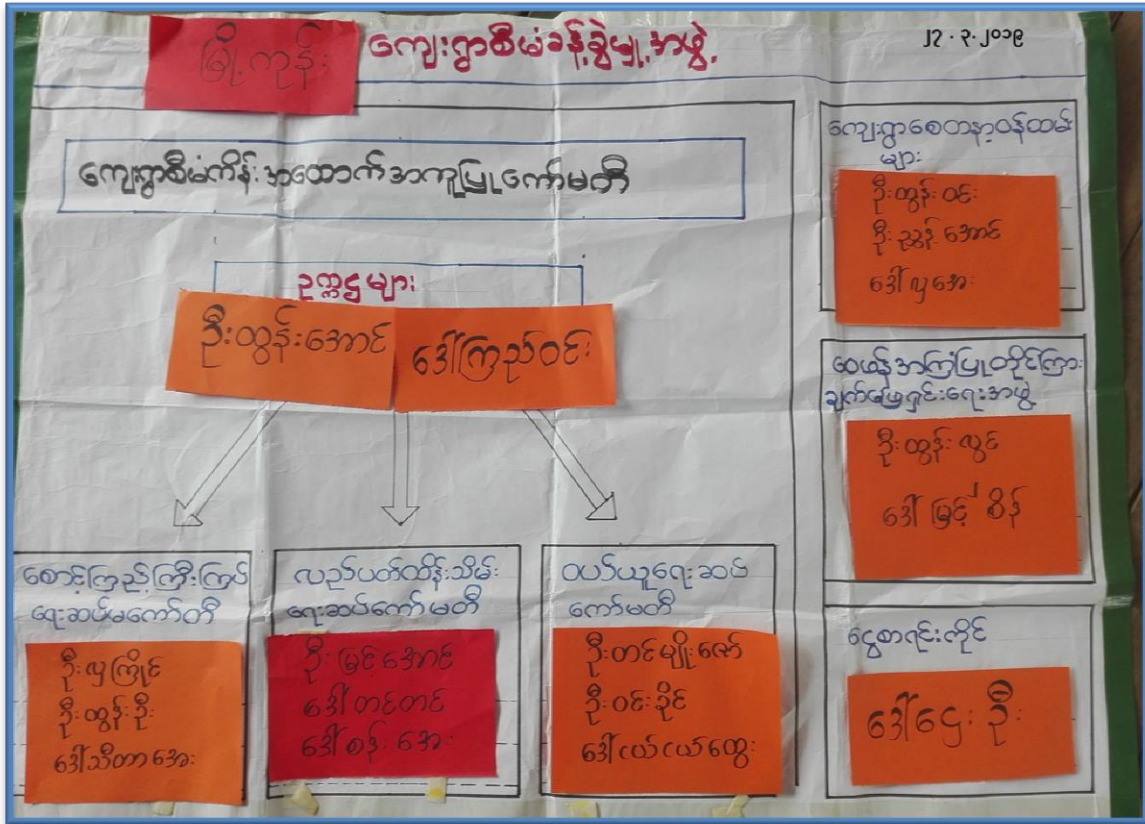 မြို့ကုန်း ကျေးရွာစီမံခန့်ခွဲမှု့အဖွဲ့
၂၇.၃.၂၀၁၉
ကျေးရွာစီမံကိန်းအထောက်အကူပြုကော်မတီ
ဥက္ကဋ္ဌများ
ဦးထွန်းအောင် ဒေါ်ကြည်ဝင်း
စောင့်ကြည့်ကြီးကြပ်
ရေးဆပ်မကော်တီ
ဦးလှကြိုင်
ဦးထွန်းဦး
ဒေါ်သီတာအေး
လည်ပတ်ထိန်းသိမ်း
ရေးဆပ်ကော်မတီ
ဦးမြင့်အောင်
ဒေါ်တင်တင်
ဒေါ်စန်းအေး
ဝယ်ယူရေးဆပ်
ကော်မတီ
ဦးတင်မျိုးဇော်
ဦးဝင်းခိုင်
ဒေါ်ငယ်ငယ်ထွေး
ကျေးရွာစေတနာ့ဝန်ထမ်း
များ
ဦးထွန်းဝင်း
ဦးညွန့်အောင်
ဒေါ်လှအေး
ဝေဖန်အကြံပြုတိုင်ကြား
ချက်ဖြေရှင်းရေးအဖွဲ့
ဦးထွန်းလွင်
ဒေါ်မြင့်စိန်
ငွေစာရင်းကိုင်
ဒေါ်ဌေးဦး